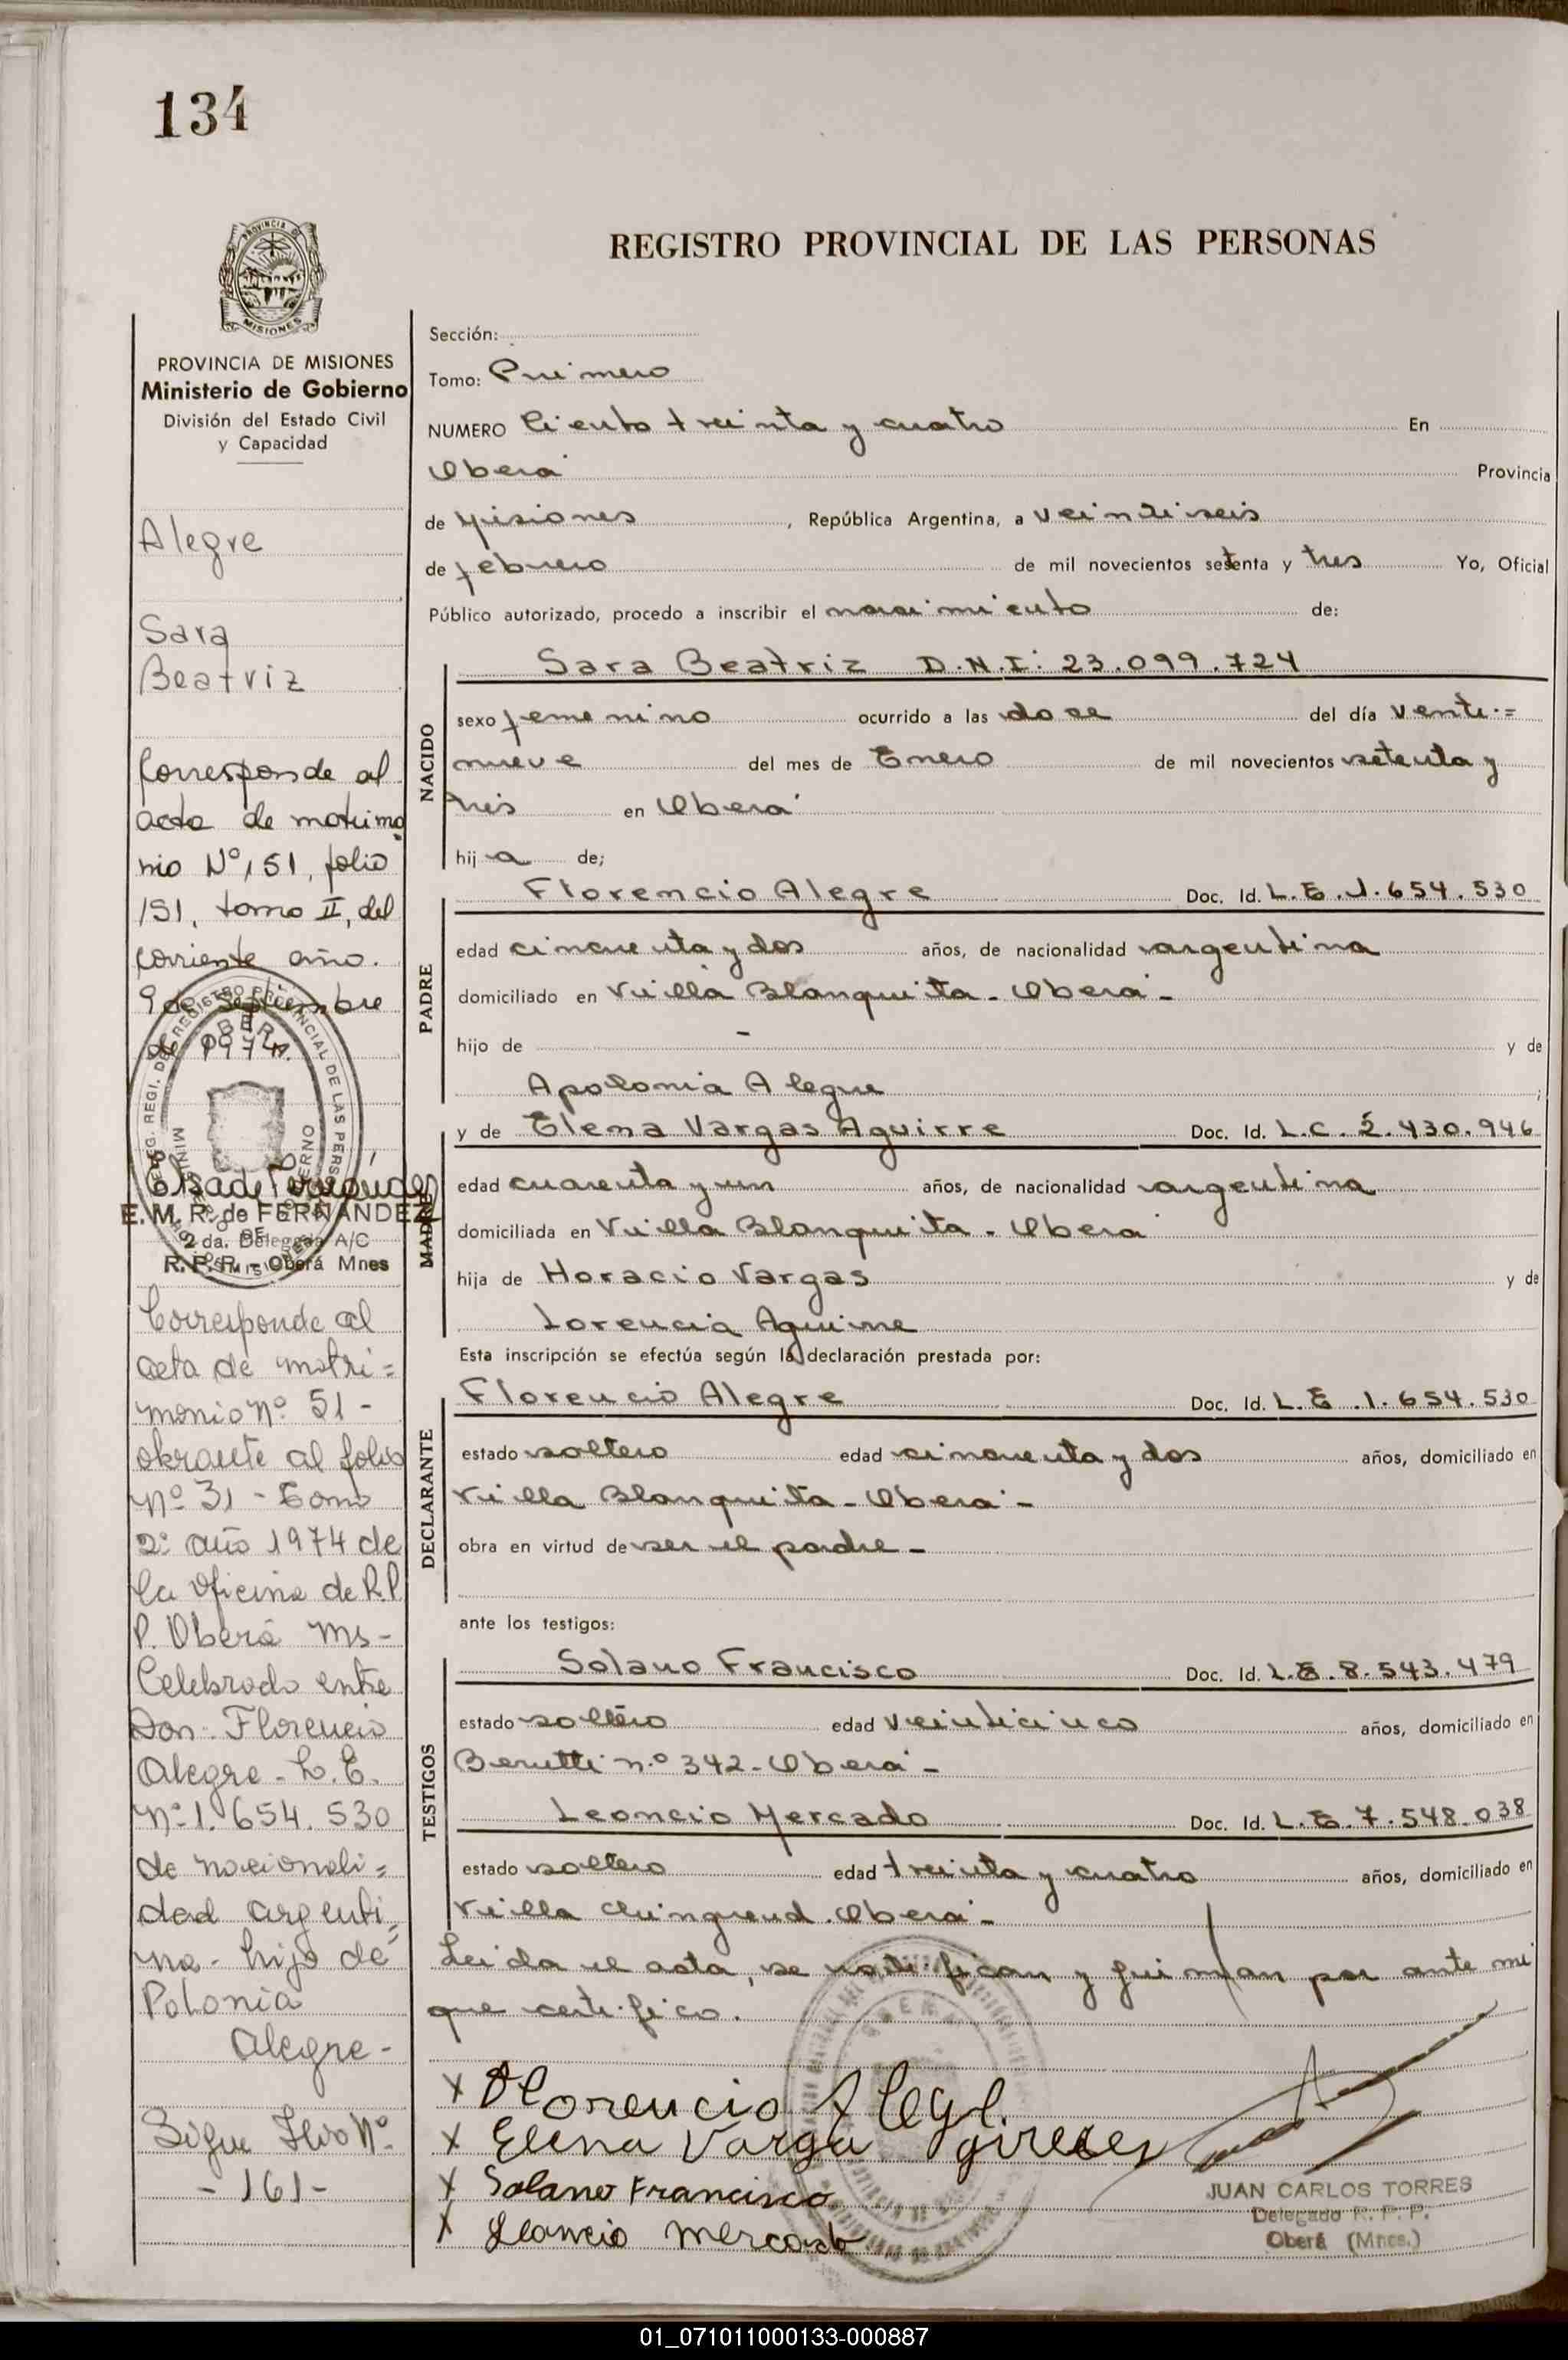 134
REGISTRO PROVINCIAL DE LAS PERSONAS
MISIONES
PROVINCIA DE MISIONES
Ministerio de Gobierno
División del Estado Civil
y Capacidad
Alegre
Sara
Beatriz
Corresponde al
acta de matrimo
nio Nº 151, folio
151, tomo II, del
corriente año.
9 de Septiembre
de 1974.
E. M. R. de FERNANDEZ
2da. Delegada A/C
R. P. P. - Oberá Mnes
Corresponde al
acta de matri=
monio Nº 51 -
obrante al folio
Nº 31 - Tomo
2º año 1974 de
la Oficina de R.P.
P. Oberá Ms -
Celebrado entre
Don: Florencio
Alegre - L. E.
Nº 1. 654. 530
de nacionali=
dad argenti=
na - hijo de
Polonia
Alegre -
Sigue Nº
- 161 -
Sección:
Tomo: Primero
NUMERO Ciento treinta y cuatro En
Oberá Provincia
de Misiones, República Argentina, a veintiseis
de febrero de mil novecientos setenta y tres Yo, Oficial
Público autorizado, procedo a inscribir el nacimiento de:
NACIDO
Sara Beatriz D.N.I: 23.099.724
sexo femenino ocurrido a las doce del día venti=
nueve del mes de Enero de mil novecientos setenta y
tres en Oberá
hija de;
PADRE
Florencio Alegre Doc. Id. L.E. 1.654.530
edad cincuenta y dos años, de nacionalidad argentina
domiciliado en Villa Blanquita - Oberá -
hijo de - y de
Apolonia Alegre ;
MADRE
y de Elena Vargas Aguirre Doc. Id. L.C. 2.430.946
edad cuarenta y un años, de nacionalidad argentina
domiciliada en Villa Blanquita - Oberá
hija de Horacio Vargas y de
Lorencia Aguirre
Esta inscripción se efectúa según la declaración prestada por:
DECLARANTE
Florencio Alegre Doc. Id. L.E. 1.654.530
estado soltero edad cincuenta y dos años, domiciliado en
Villa Blanquita - Oberá -
obra en virtud de ser el padre -
ante los testigos:
TESTIGOS
Solano Francisco Doc. Id. L.E. 8.543.479
estado soltero edad veinticinco años, domiciliado en
Berutti n.º 342 - Oberá -
Leoncio Mercado Doc. Id. L.E. 7.548.038
estado soltero edad treinta y cuatro años, domiciliado en
Villa . Oberá -
Leida el acta, se notifican y firman por ante mi
que certifico.
x Florencio Alegre
x Elena Varga
x Solano Francisco
x Leoncio Mercado
JUAN CARLOS TORRES
Delegado R. P. P.
Oberá (Mnes.)
01_071011000133-000887